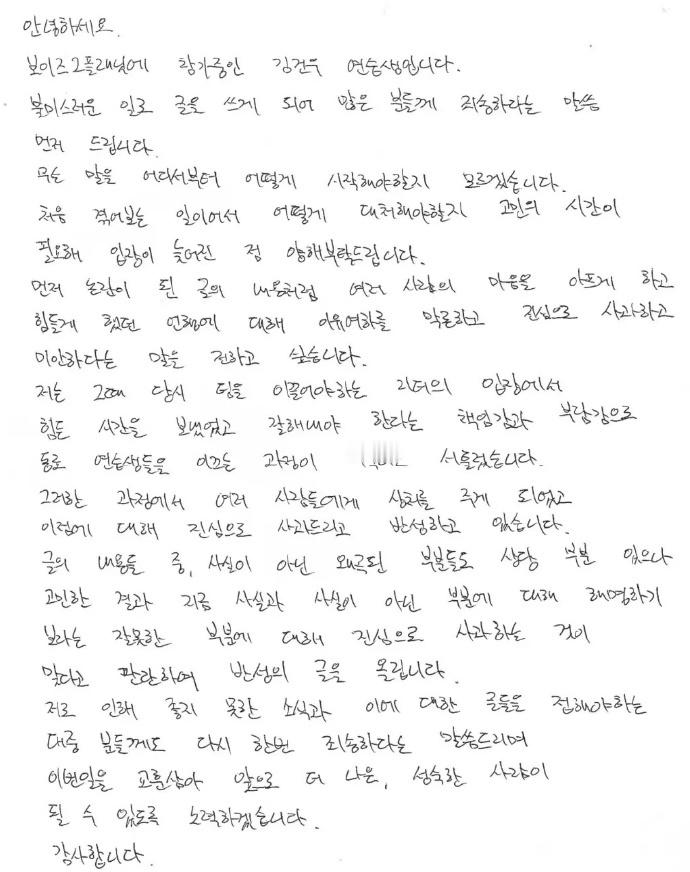 안녕하세요.
보이즈2플래닛에 참가중인 김건우 연습생입니다.
불미스러운 일로 글을 쓰게 되어 많은 분들께 죄송하다는 말씀
먼저 드립니다.
무슨 말을 어디서부터 어떻게 시작해야할지 모르겠습니다.
처음 겪어보는 일이어서 어떻게 대처해야할지 고민의 시간이
필요해 입장이 늦어진 점 양해부탁드립니다.
먼저 논란이 된 글의 내용처럼 여러 사람의 마음을 아프게 하고
힘들게 했던 언행에 대해 이유여하를 막론하고 진심으로 사과하고
미안하다는 말을 전하고 싶습니다.
저는 그때 당시 팀을 이끌어야하는 리더의 입장에서
힘든 시간을 보냈었고 잘해내야 한다는 책임감과 부담감으로
동료 연습생들을 이끄는 과정이 서툴렀습니다.
그러한 과정에서 여러 사람들에게 상처를 주게 되었고
이점에 대해 진심으로 사과드리고 반성하고 있습니다.
글의 내용들 중, 사실이 아닌 왜곡된 부분들도 상당 부분 있으나
고민한 결과 지금 사실과 사실이 아닌 부분에 대해 해명하기
보다는 잘못한 부분에 대해 진심으로 사과하는 것이
맞다고 판단하여 반성의 글을 올립니다.
저로 인해 좋지 못한 소식과 이에 대한 글들을 접해야하는
대중 분들께도 다시 한번 죄송하다는 말씀드리며
이번일을 교훈삼아 앞으로 더 나은, 성숙한 사람이
될 수 있도록 노력하겠습니다.
감사합니다.